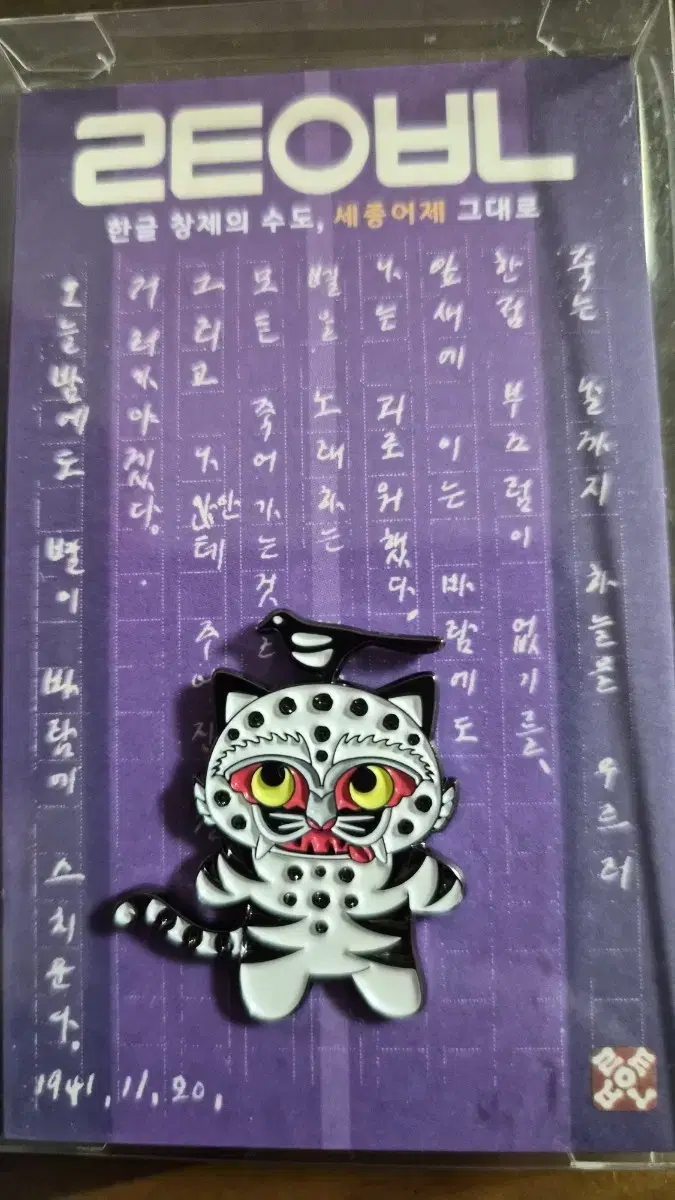 ㄹㅌㅇㅂㄴ
한글 창제의 수도, 세종어제 그대로
죽는 날까지 하늘을 우르러
한점 부끄럼이 없기를、
잎새에 이는 바람에도
나는 괴로워했다.
별을 노래하는
모든 죽어가는것
그리고 나안테 주어진
거러가야겠다.
오늘밤에도 별이 바람에 스치운다.
1941.11.20.